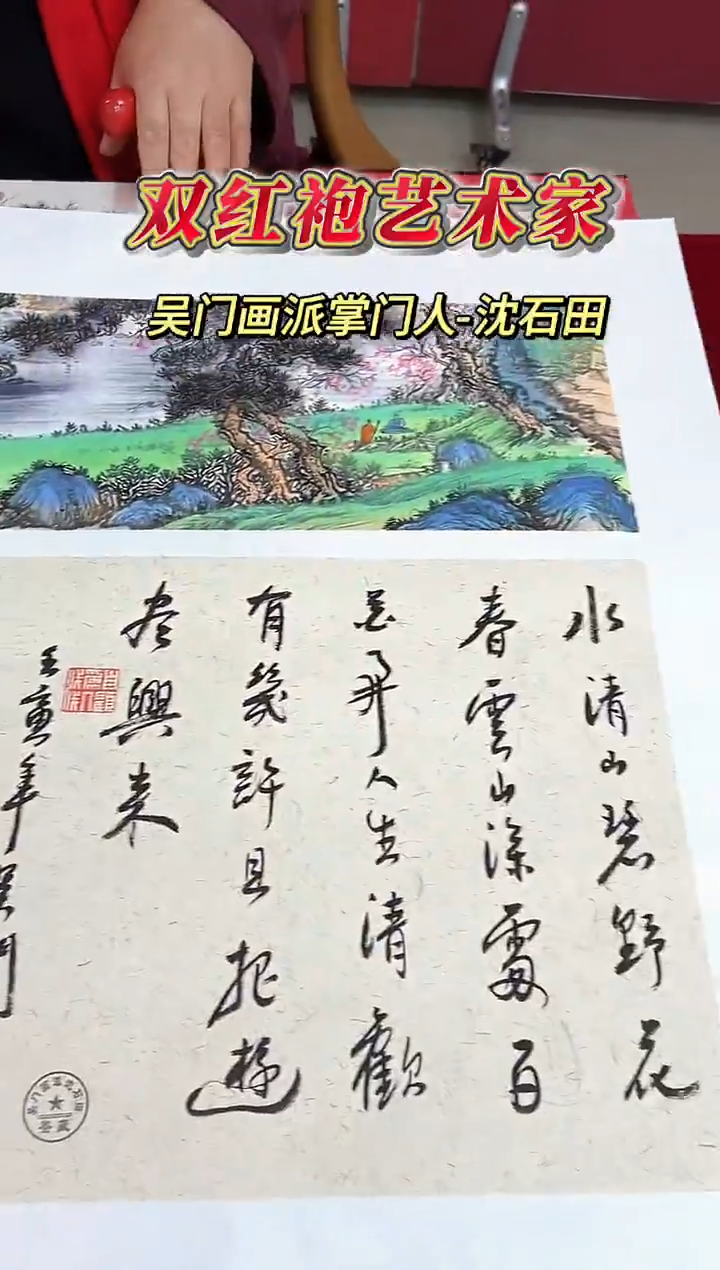 双红袍艺术家
吴门画派掌门人-沈石田
水清山碧野花
春雲山深百
了人生清歡
有幾許且把遊
尽興来
壬寅年吴门